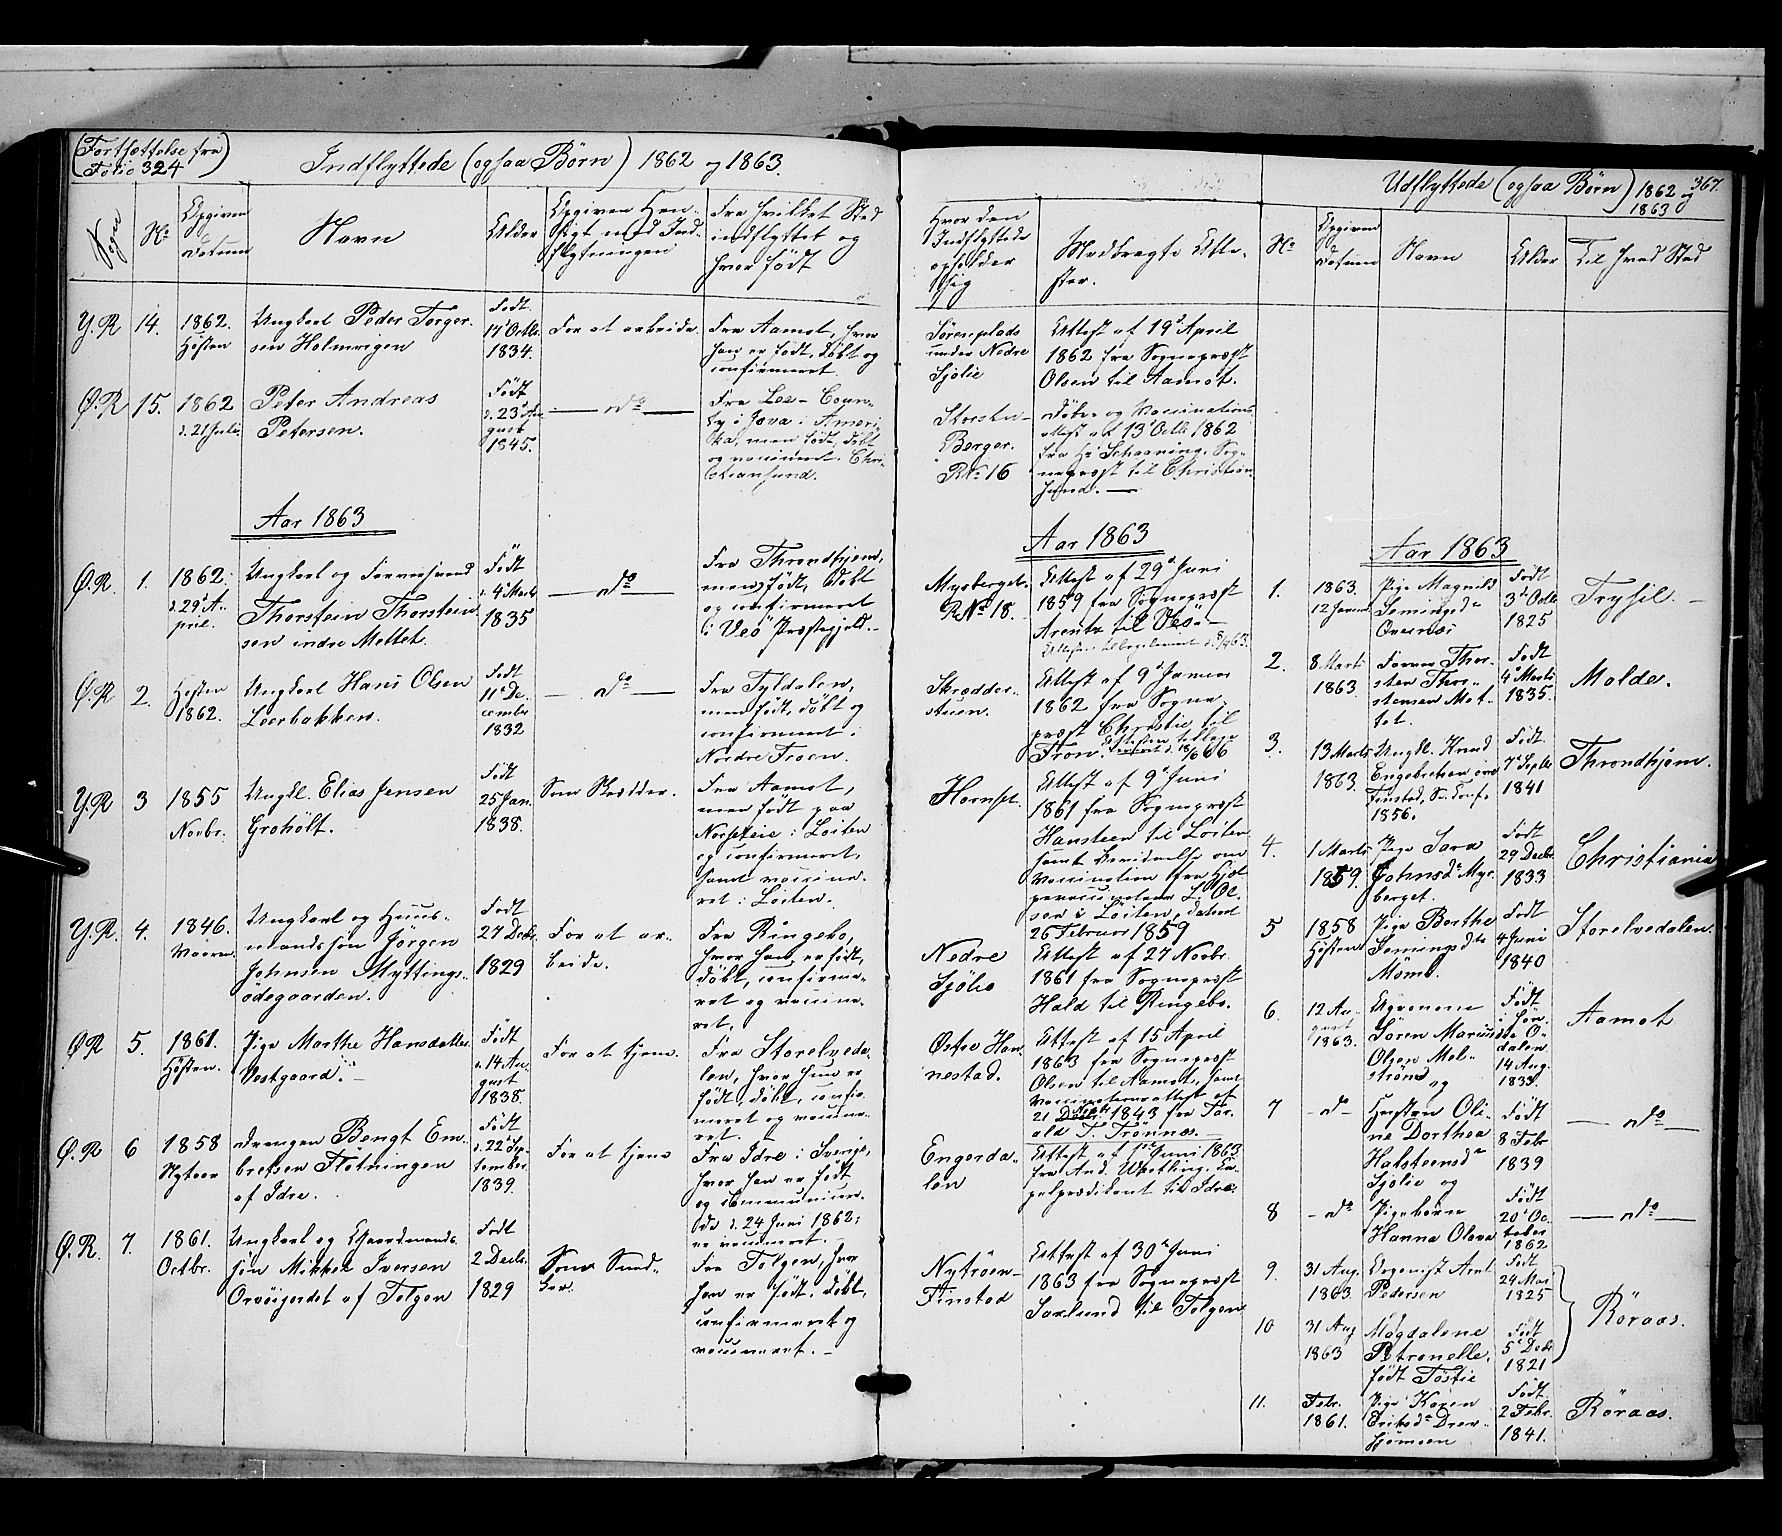 (Fortsættelse fra
Folio 324)
Indflyttede (ogsaa Børn) 1862 og 1863.
Sogn
No
Opgiven
Datum
Navn
Alder
Opgiven Hen-
sigt med Ind-
flytningen
Fra hvilket Sted
indflyttet og
hvor født
Hvor den
Indflyttede
opholder
sig
Medbragte Atte-
ster.
Y.R
14.
1862.
Høsten
Ungkarl Peder Torger-
sen Holmvegen
Født
17 Octbr.
1834.
For at arbeide.
Fra Aamot, hvor
han er født, døbt og
confirmeret.
Sørenplads
under Nedre
Sjølie
Attest af 19de April
1862 fra Sognepræst
Olsen til Aamot.
Ø.R
15.
1862
d. 21 Juli
Peter Andreas
Petersen.
Født
d. 23 Au-
gust
1845.
— do —
Fra Lee-Coun-
ty i Jova i Ameri-
ka, men født, døbt
og vaccineret i Chri-
stiansund.
Storsten-
Berger.
R.No 16
Døbe- og Vaccinations
attest af 13de Octb 1862
fra Hr Schavning, Sog-
nepræst til Christian-
sund. —
Aar 1863
Aar 1863
Ø.R
1.
1862.
d. 29de A-
pril.
Ungkarl og Farvesvend
Thorstein Thorstein-
sen indre Mettet.
Født
d. 4de Marts
1835
— do —
Fra Throndhjem,
men født, døbt
og confirmeret
i Veö Præstegjeld.
Mysberget.
R.No 18.
Attest af 29de Juni
1859 fra Sognepræst
Arentz til Veö. —
Ø.R
2.
Høsten
1862.
Ungkarl Hans Olsen
Leerbakken.
Født
11te De-
cember
1832
— do —
Fra Tyldalen,
men født, døbt og
confirmeret i
Nordre Froen.
Skrædder-
stuen.
Attest af 9de Januar
1862 fra Sogne-
præst Christie til
Fron.
Y.R
3
1855
Novbr.
Ungkl. Elias Jensen
Groholt.
Født
25 Jan.
1838.
Som Skrædder.
Fra Aamot,
men født paa
Norseteie i Løiten
og confirmeret,
samt vaccine-
ret i Løiten.
Hornset.
Attest af 9de Juni
1861 fra Sognepræst
Hansteen til Løiten
samt Bevidnelse om
Vaccination fra Hjæl-
pevaccinateur L. Ol-
sen i Løiten, dateret
26 Februar 1859
Y.R.
4.
1846.
Vaaren
Ungkarl og Huus-
mandssøn Jörgen
Johnsen Myttings-
ödegaarden.
Født
27 Decbr.
1829
For at ar-
beide.
Fra Ringebo,
hvor han er født,
døbt, confirme-
ret og vaccine-
ret.
Nedre
Sjölie
Attest af 27 Novbr.
1861 fra Sognepræst
Hald til Ringebo.
ØR
5.
1861.
Høsten.
Pige Marthe Hansdatter
Vestgaard. —
Født
d. 14 Au-
gust
1838.
For at tjene.
Fra Storelveda-
len, hvor hun er
født, døbt, confir-
meret og vaccine-
ret.
Østre Han-
nestad.
Attest af 15 April
1863 fra Sognepræst
Olsen til Aamot, samt
Vaccinationsattest af
21 Decbr. 1843 fra Tor-
ald T. Trønnæs.
Ø.R
6
1858
Nytaar
Drengen Bengt Em-
bretsen Flotningen
af Idre.
Født
d. 22 Sep-
tember
1839.
For at tjene
Fra Idre i Sverige,
hvor han er født
og communicer-
de d. 24 Juni 1862;
er vaccineret.
Engerda-
len
Attest af 1ste Juni 1863
fra And. Westling, Ca-
pelprædikant til Idre.
Ø.R.
7.
1861.
Octbr.
Ungkarl og Gaardmands-
søn Mikkel Iversen
Orvöigerdet af Tolgen
Født
2 Decbr.
1829
Som Sned-
ker.
Fra Tolgen, hvor
han er født, døbt,
confirmeret og
vaccineret. —
Nytröen-
Finstad
Attest af 30te Juni
1863 fra Sognepræst
Saxlund til Tolgen
Udflyttede (ogsaa Børn) 1862 og
1863
367.
No
Opgiven
Datum
Navn
Alder
Til hvad Sted
Aar 1863
1.
1863.
12 Januar
Pige Magnild
Semingsdr
Qvernæs
Født
3de Octb
1825
Trysil. —
2.
8 Marts
1863.
Farver Thor-
sten Thor-
stensen Met-
tet.
Født
4 Marts
1835.
Molde.
3.
13 Marts
1863.
Ungkl. Knud
Engebretsen
Finstad,
1856.
Født
7 Septbr
1841
Throndhjem.
4.
1 Marts
1859.
Pige Sara
Johnsdr Mys-
berget.
Født
29 Decbr.
1833
Christiania
5
1858
Høsten
Pige Berthe
Semingsdtr
Mömb.
Født
4 Juni
1840
Storelvedalen.
6.
12 Au-
gust
1863.
Agronom
Sören Marius
Olsen Mel-
ström
og
Født
i Søn-
dre O-
dalen
14 Aug.
1833.
Aamot
7
- do -
Hustru Oli-
ne Dorthea
Halsteensdr
Sjölie og
Født
8 Febr
1839
— do —
8
- do
Pigebarn
Hanna Olava
Født
20 Oc-
tober
1862
— do —
9.
31 Aug.
1863
Organist Arnt
Pedersen
Født
24 Mar.
1825
Röraas.
10
31 Aug
1863
Magdalene
Petronelle,
født Tostie
Født
5 Decbr
1821
11.
Febr.
1861.
Pige Karen
Eriksdr Drev-
sjömoen
Født
2 Febr.
1841.
Röraas.